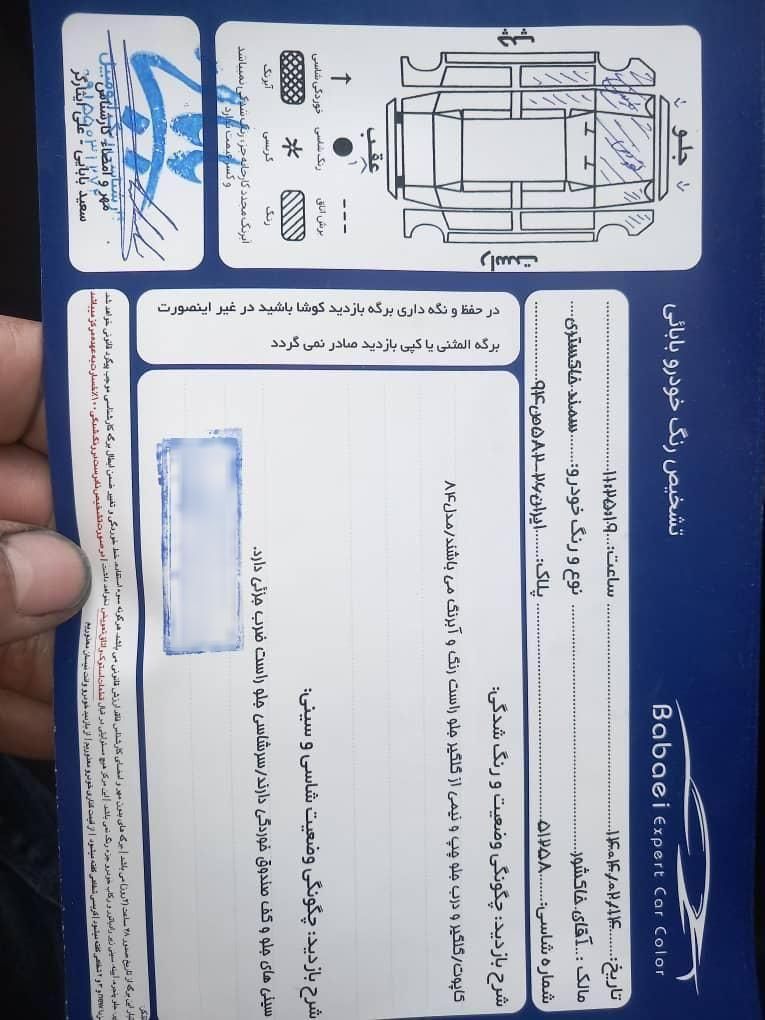 تشخیص رنگ خودرو بابائی
Babaei Expert Car Color
تاریخ:......۱۴۰۴/۰۲/۱۴
ساعت:...۱۱:۲۵:۱۹
مالک :..آقای خاکشور
نوع و رنگ خودرو:......سمند خاکستری
شماره شاسی:......۵۱۲۵۸
پلاک:......ایران۲۶-۵۸۲ص۹۴
در حفظ و نگه داری برگه بازدید کوشا باشید در غیر اینصورت
برگه المثنی یا کپی بازدید صادر نمی گردد
شرح بازدید: چگونگی وضعیت و رنگ شدگی:
کاپوت/گلگیر و درب جلو چپ و نیمی از گلگیر جلو راست رنگ و آبرنگ می باشند/مدل۸۴
شرح بازدید: چگونگی وضعیت شاسی و سینی:
سینی های جلو و کف صندوق خوردگی دارند/سرشاسی جلو راست ضرب جزئی دارد.
چپ
جلو
عقب
راست
خوردگی شاسی
رنگ شاسی
برش اتاق
آبرنگ
کریسی
رنگ
آبرنگ مجدد کارخانه جزء رنگ شدگی نمیباشد
و کسر قیمت ندارد
مهر و امضاء کارشناس
سعید بابایی - علی ایثارگر